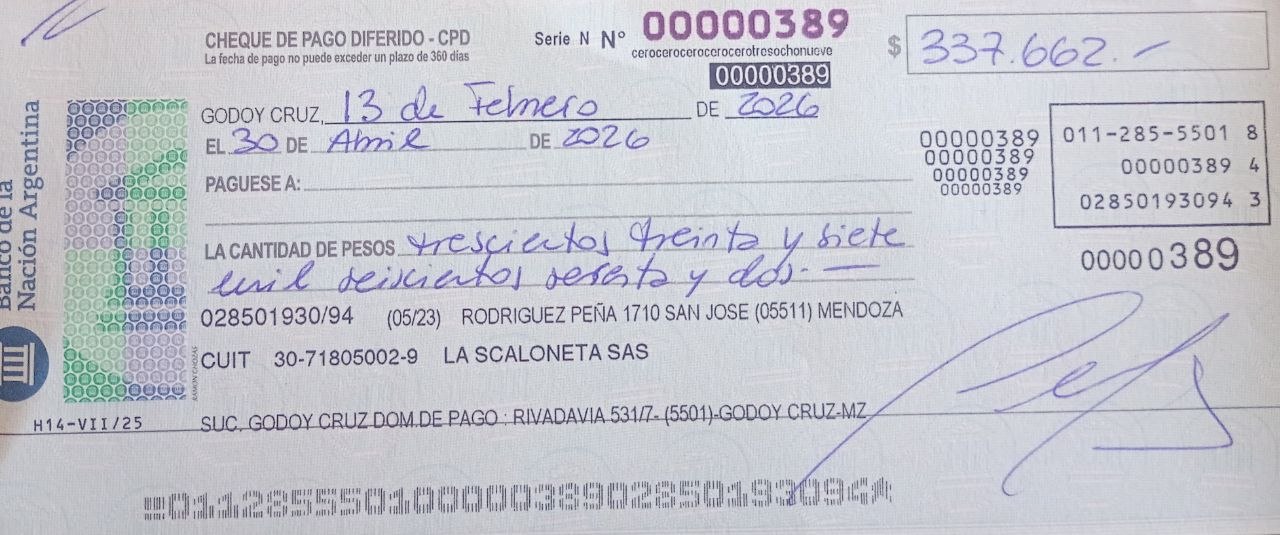 CHEQUE DE PAGO DIFERIDO - CPD
La fecha de pago no puede exceder un plazo de 360 días
Serie N Nº 00000389
cerocerocerocerocerotresochonueve
00000389
$ 337.662.-
GODOY CRUZ, 13 de Febrero DE 2026
EL 30 DE Abril DE 2026
PAGUESE A:
00000389
00000389
00000389
00000389
011-285-5501 8
00000389 4
02850193094 3
LA CANTIDAD DE PESOS trescientos treinta y siete
mil seiscientos sesenta y dos.-
00000389
028501930/94 (05/23) RODRIGUEZ PEÑA 1710 SAN JOSE (05511) MENDOZA
CUIT 30-71805002-9 LA SCALONETA SAS
SUC. GODOY CRUZ DOM.DE PAGO : RIVADAVIA 531/7- (5501)-GODOY CRUZ-MZ
Banco de la
Nación Argentina
RAMON CHOZAS
H14-VII/25
01128555010000038902850193094